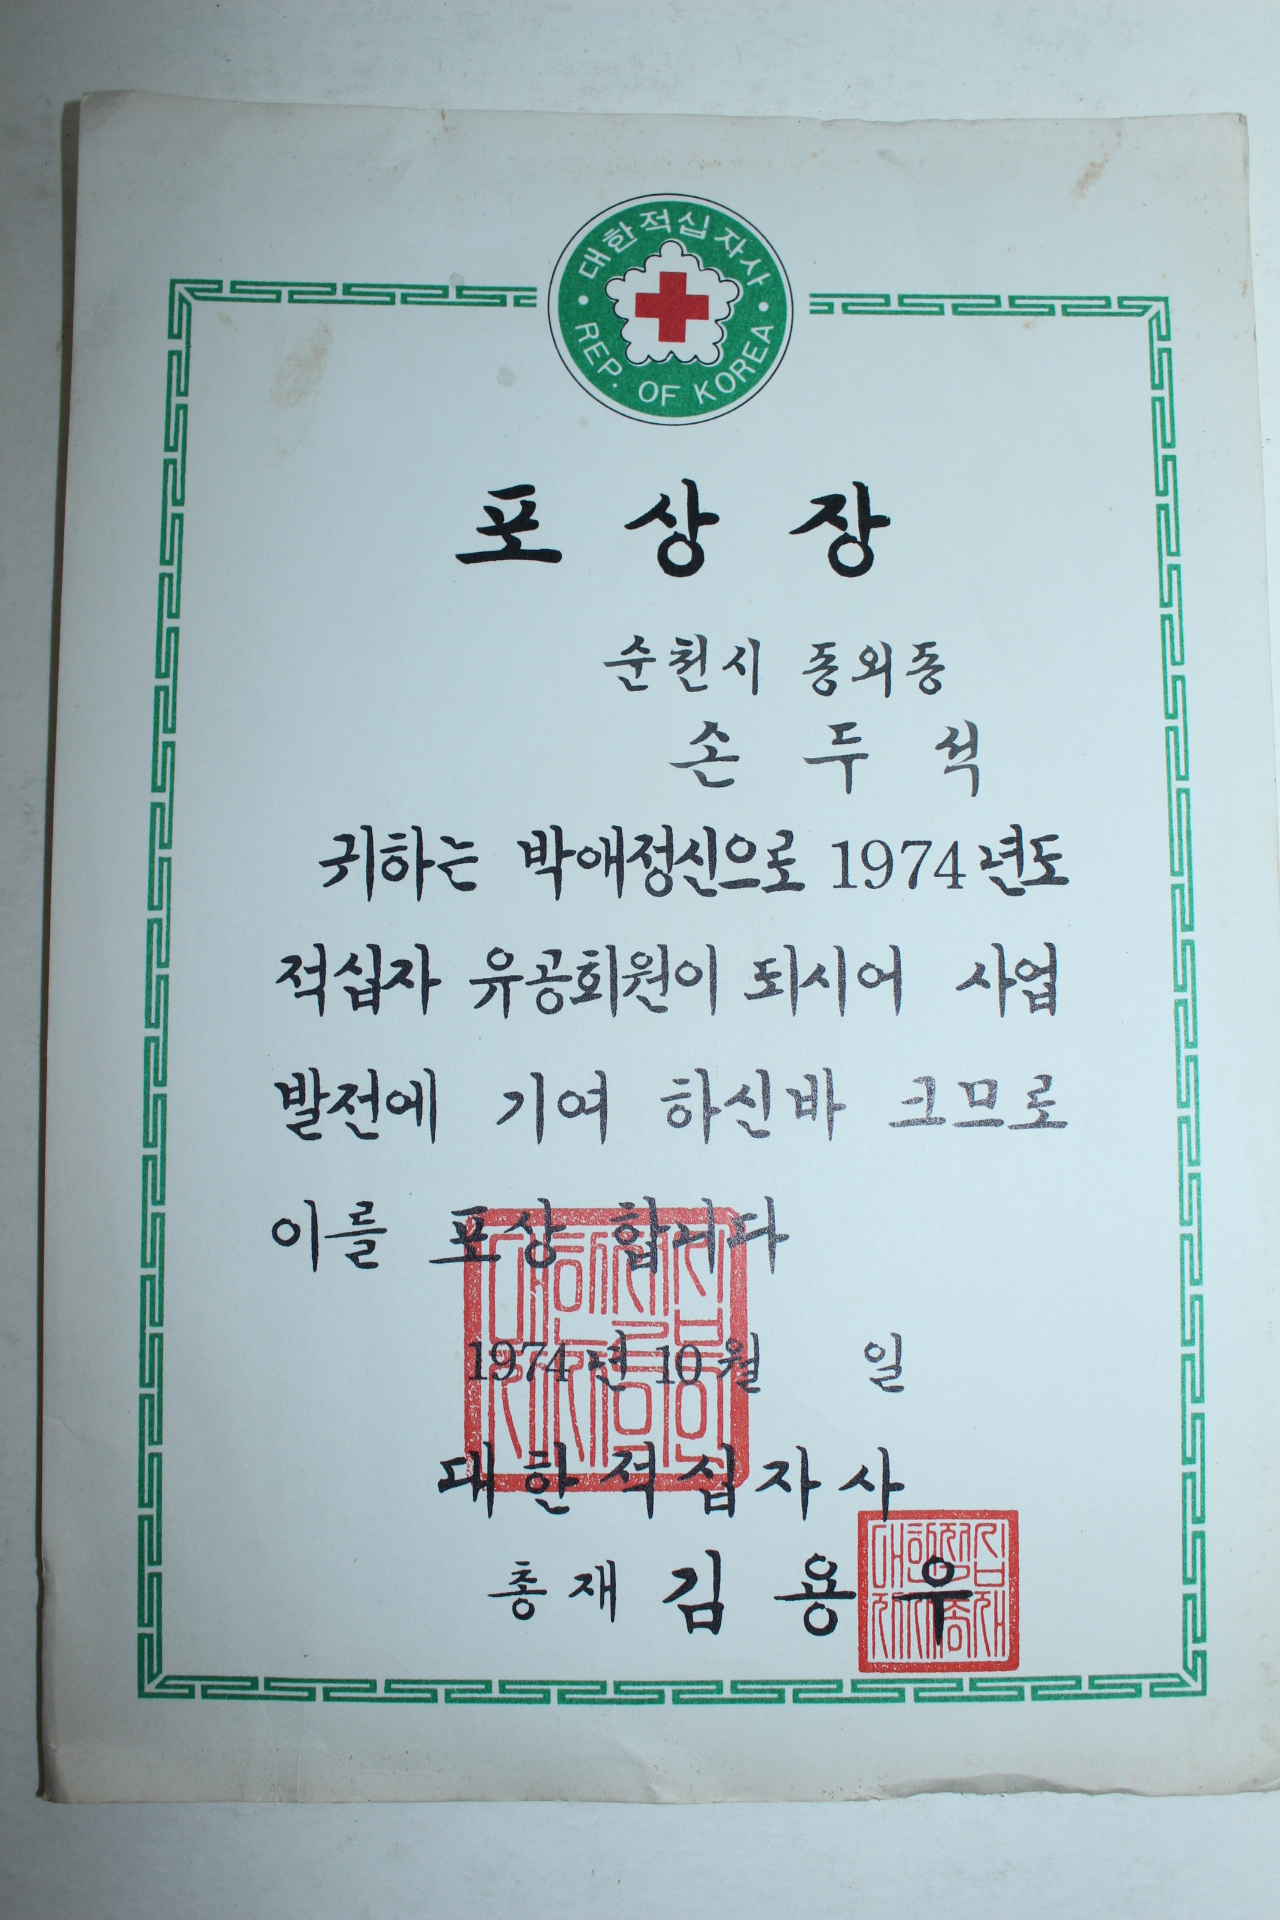 대한적십자사
REP. OF KOREA
포상장
순천시 동외동
손 두 석
귀하는 박애정신으로 1974년도
적십자 유공회원이 되시어 사업
발전에 기여 하신바 크므로
이를 포상 합니다
1974년 10월 일
대한적십자사
총재 김용우